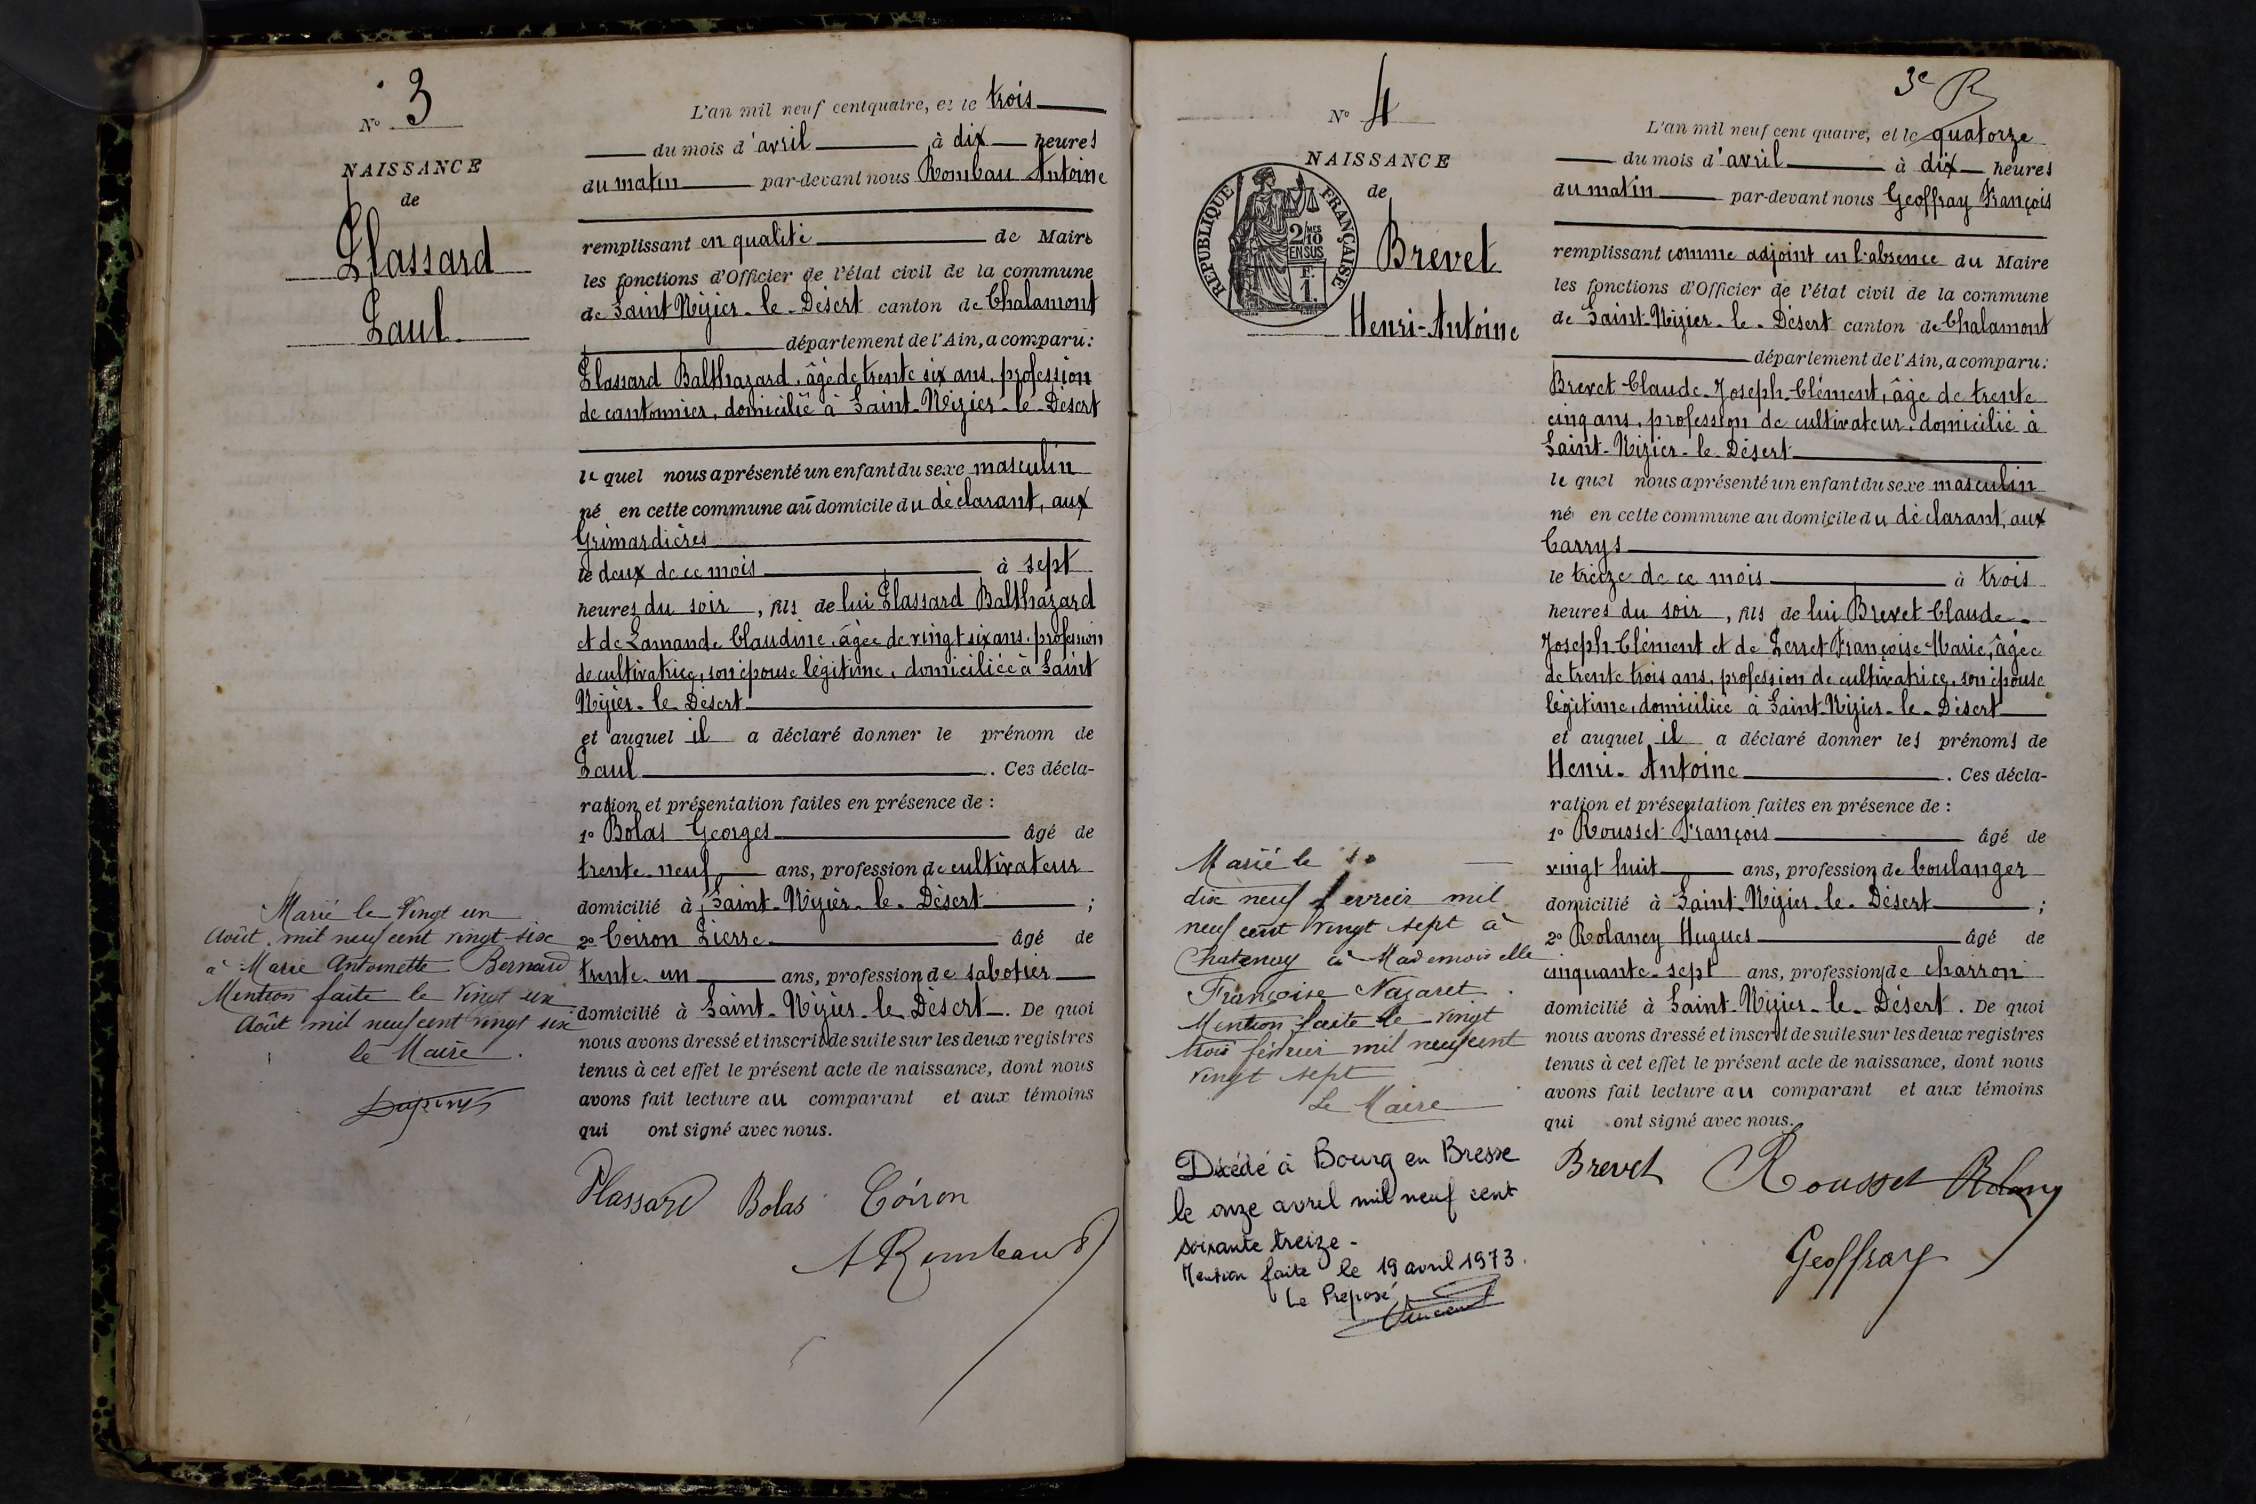 N° 3
NAISSANCE
de
Plassard
Paul
L'an mil neuf cent quatre, et le trois
du mois d'avril à dix heures
du matin par-devant nous Rombau Antoine
remplissant en qualité de Maire
les fonctions d'Officier de l'état civil de la commune
de Saint Nizier-le-Désert canton de Chalamont
département de l'Ain, a comparu:
Plassard Balthazard, âgé de trente six ans, profession
de cantonnier, domicilié à Saint-Nizier-le-Désert
le quel nous a présenté un enfant du sexe masculin
né en cette commune au domicile du déclarant, aux
Grimardières
le deux de ce mois à sept
heures du soir, fils de lui Plassard Balthazard
et de Lamande Claudine, âgée de vingt six ans, profession
de cultivatrice, son épouse légitime, domiciliée à Saint
Nizier-le-Désert
et auquel il a déclaré donner le prénom de
Paul. Ces décla-
ration et présentation faites en présence de :
1° Bolas Georges âgé de
trente-neuf ans, profession de cultivateur
domicilié à Saint-Nizier-le-Désert ;
2° Coiron Pierre âgé de
trente-un ans, profession de sabotier
domicilié à Saint-Nizier-le-Désert. De quoi
nous avons dressé et inscrit de suite sur les deux registres
tenus à cet effet le présent acte de naissance, dont nous
avons fait lecture au comparant et aux témoins
qui ont signé avec nous.
Plassard Bolas Coiron
A Rombaud
Marié le Vingt un
Août mil neuf cent vingt-six
à Marie Antoinette Bernard
Mention faite le Vingt un
Août mil neuf cent vingt six
le Maire.
3e R
N° 4
NAISSANCE
de
Brevet
Henri-Antoine
RÉPUBLIQUE FRANÇAISE
2/10 MES
EN SUS
F.
1
L'an mil neuf cent quatre, et le quatorze
du mois d'avril à dix heures
du matin par-devant nous Geoffray François
remplissant comme adjoint en l'absence du Maire
les fonctions d'Officier de l'état civil de la commune
de Saint-Nizier-le-Désert canton de Chalamont
département de l'Ain, a comparu:
Brevet Claude-Joseph-Clément, âgé de trente
cinq ans, profession de cultivateur, domicilié à
Saint-Nizier-le-Désert
le quel nous a présenté un enfant du sexe masculin
né en cette commune au domicile du déclarant, aux
Carrys
le treize de ce mois à trois
heures du soir, fils de lui Brevet Claude-
Joseph-Clément et de Perret Françoise-Marie, âgée
de trente trois ans, profession de cultivatrice, son épouse
légitime, domiciliée à Saint-Nizier-le-Désert
et auquel il a déclaré donner les prénoms de
Henri-Antoine. Ces décla-
ration et présentation faites en présence de :
1° Rousset François âgé de
vingt huit ans, profession de boulanger
domicilié à Saint-Nizier-le-Désert ;
2° Rolaney Hugues âgé de
cinquante-sept ans, profession de charron
domicilié à Saint-Nizier-le-Désert. De quoi
nous avons dressé et inscrit de suite sur les deux registres
tenus à cet effet le présent acte de naissance, dont nous
avons fait lecture au comparant et aux témoins
qui ont signé avec nous.
Brevet Rousset Rolaney
Geoffray
Marié le
dix neuf fevreir mil
neuf cent vingt sept à
Chatenay à Mademoiselle
Françoise Nazaret.
Mention faite le vingt
trois février mil neuf cent
vingt sept
Le Maire
Décédé à Bourg en Bresse
le onze avril mil neuf cent
soixante treize.
Mention faite le 19 avril 1973.
Le Préposé,
Vincent